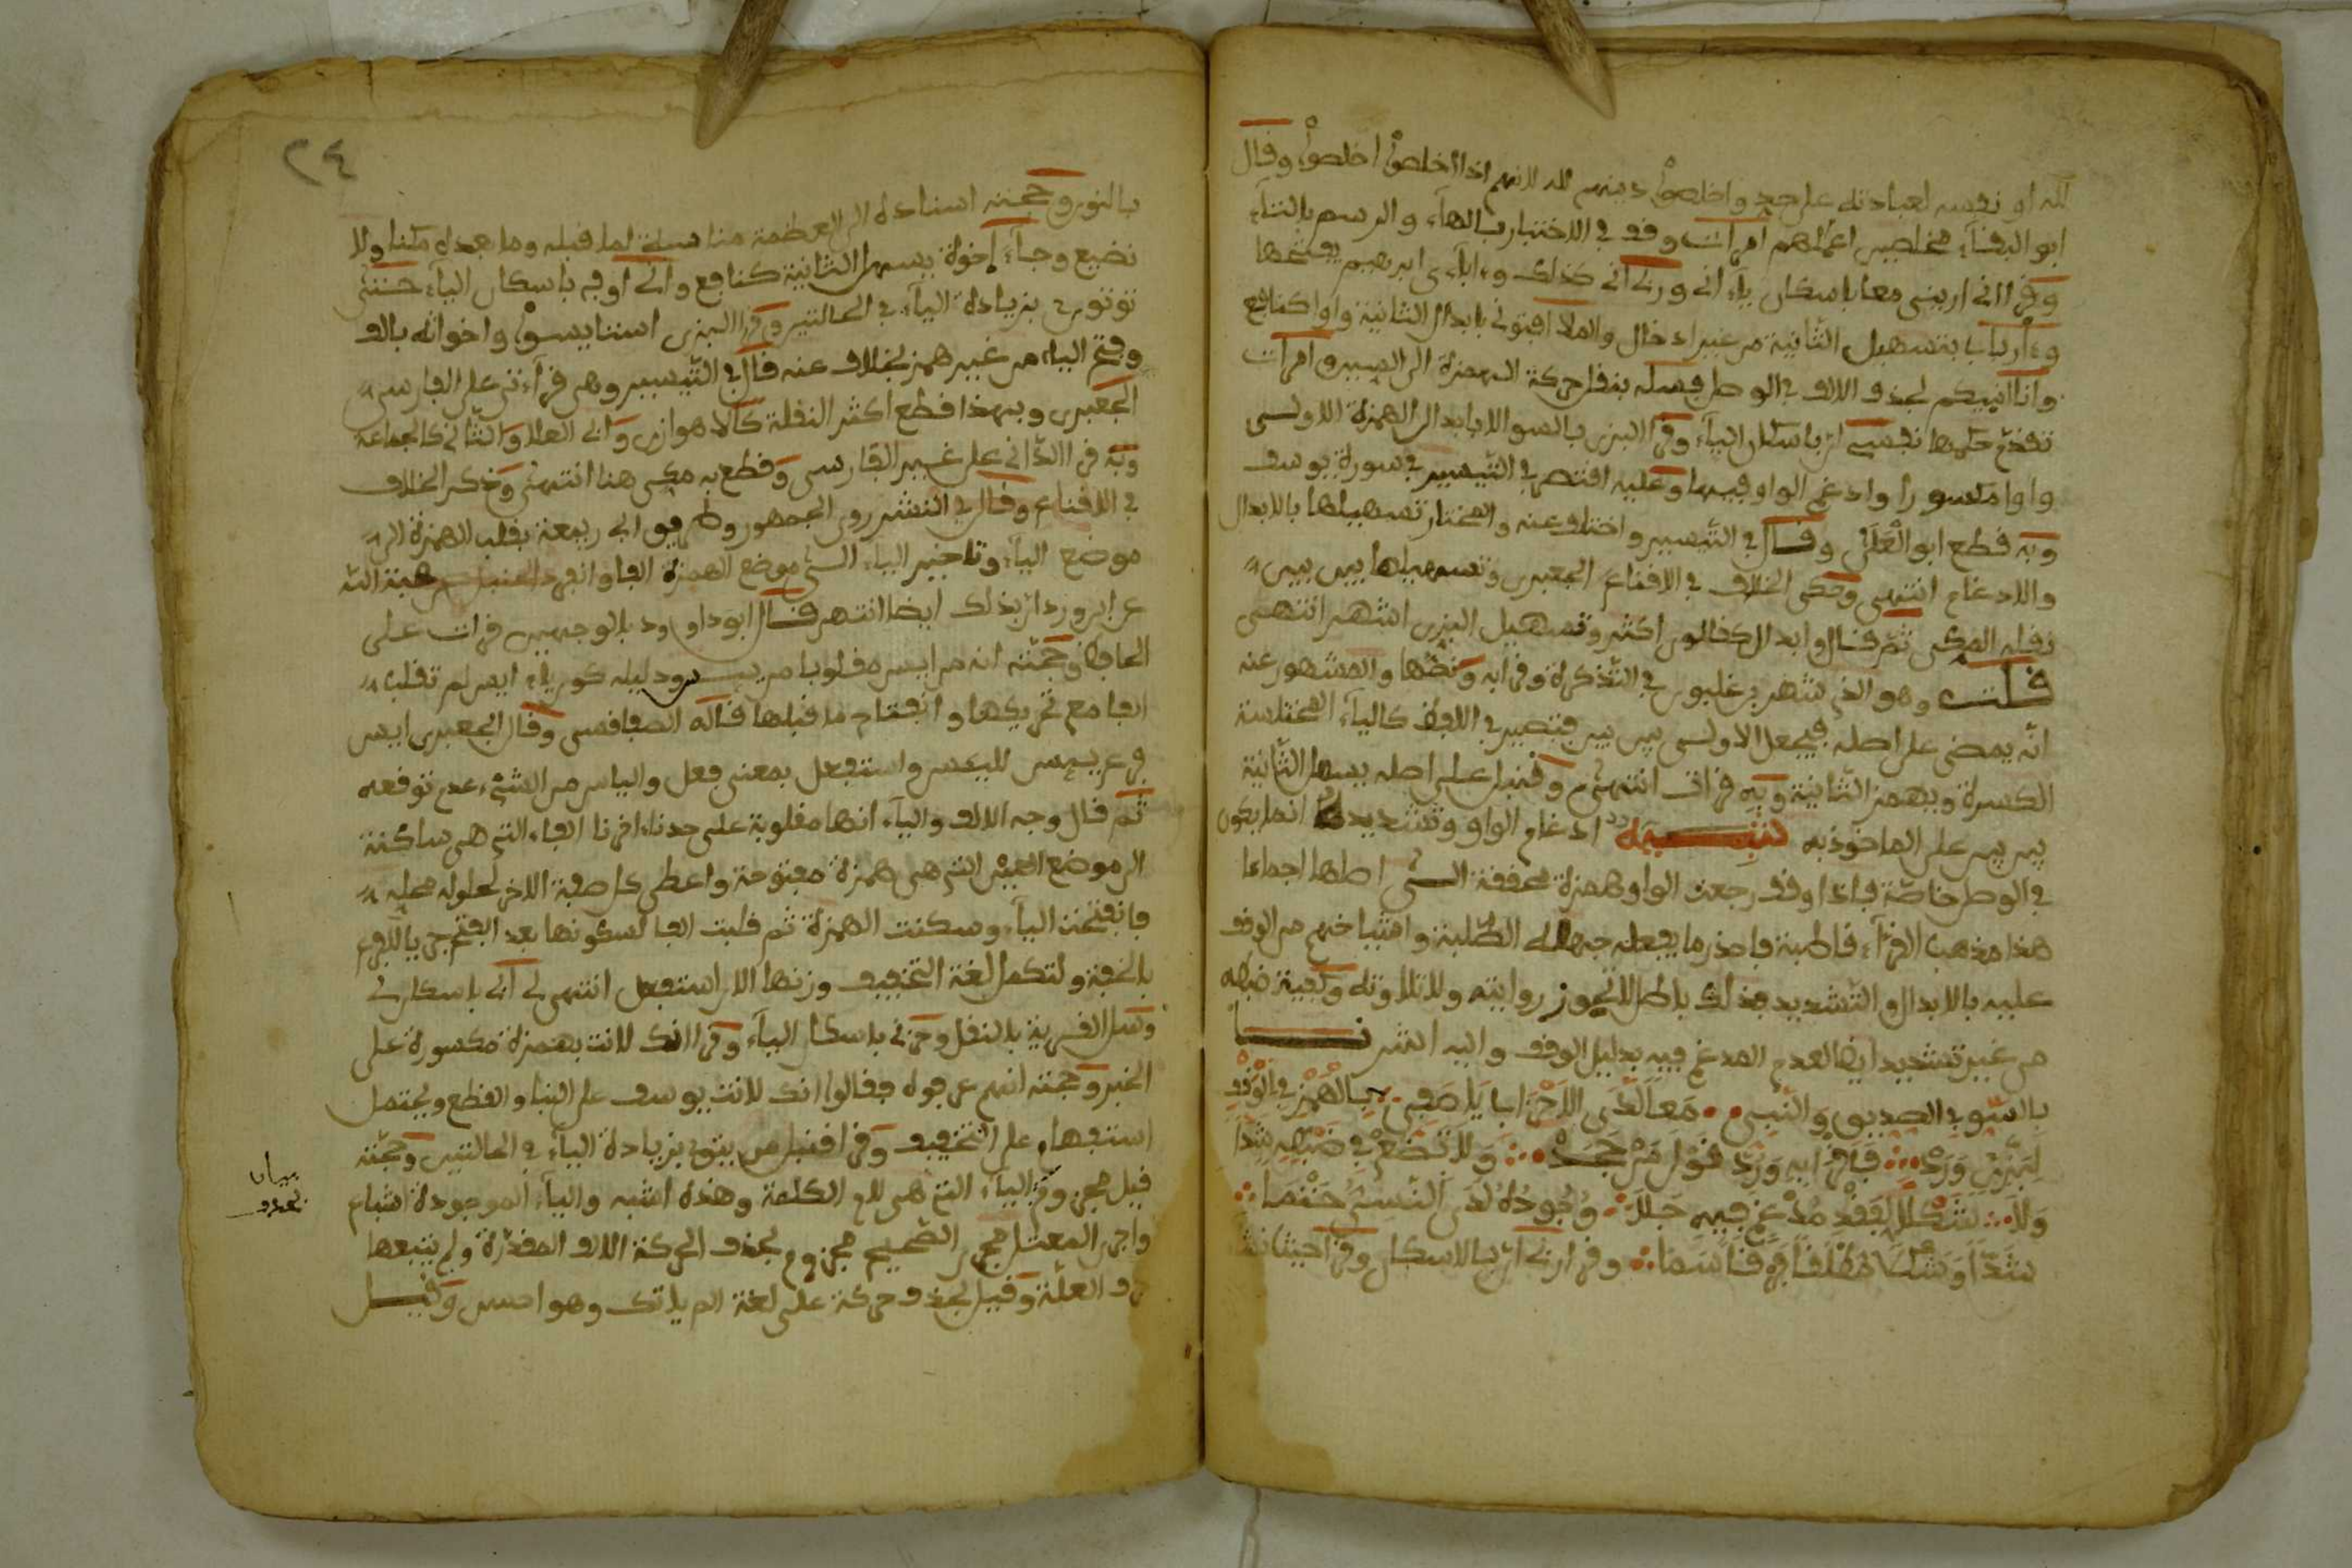 لله او نفسه لعبادته على حد واخلصوا دينهم لله لانهم اذا اخلصوا اخلصوا وقال
ابو البقاء مخلصين اعمالهم امرأت وقف في الاختبار بالهاء والرسم بالتاء
وقرا اني اريني معا باسكان ياء اني وربي اني كذلك وءاباءي ابرهيم يفتحها
وءارباب بتسهيل الثانية من غير ادخال والملأ افتوني بابدال الثانية واوا كنافع
وانا انبيكم بحذف الالف في الوصل فسله بنقل حركة الهمزة الى السين وامرأت
تقدم حكمها نفسي ان باسكان الياء وقرا البزى بالسو الا بابدال الهمزة الاولى
واوا مكسورا وادغم الواو فيها وعليه اقتصر في التيسير في سورة يوسف
وبه قطع ابو العلى وقال في التيسير واختلف عنه والمختار تسهيلها بالابدال
والادغام انتهى وحكى الخلاف في الاقناع الجعبرى وتسهيلها بين بين
نقله المكي ثم قال وابدال كقالون اكثر وتسهيل البزى اشهر انتهى
قلت وهو الذي شهر بن غلبون في التذكرة وقرا به ونصها والمشهور عنه
انه يمضى على اصله فيجعل الاولى بين بين فتصير في اللفظ كالياء المختلسة
الكسرة ويهمز الثانية وبه قرات انتهى وقنبل على اصله يسهل الثانية
بين بين على الماخوذ به تنبيه ادغام الواو وتشديدها انما يكون
في الوصل خاصة فاذا وقف رجعت الواو همزة محققة التي اصلها اجماعا
هذا مذهب القراء قاطبة فاحذر ما يفعله جهال الطلبة واشياخهم من الوقف
عليه بالابدال والتشديد فذلك باطل لا يجوز روايته ولا تلاوته وكيفية ضبطه
من غير تشديد ايضا لعدم المدغم فيه بدليل الوقف واليه اشرنا
بالسو في الصديق والنبيء معا لدى الاحزاب يا صفي بالهمز في الوقف
لبزى ورد فاقرا به ورد قول من جحد ولا تضع في ضبطه شدا
ولا شكلا لفقد مدغم فيه جلا وجوده لدى النسيء حتما
شدا وشكلا مطلقا قد رسما وقرا ربي ان بالاسكان وقرا حيث نشاء
٢٤
بالنون وحجته اسناده الى العظمة مناسبة لما قبله وما بعده مكنا ولا
نضيع وجاء اخوة يسهل الثانية كنافع واني اوفي باسكان الياء حتى
توتون بزيادة الياء في الحالتين وقرا البزى استايسوا واخواته بالف
وفتح الياء من غير همز بخلاف عنه قال في التيسير وهى قراءتى على الفارسى
الجعبرى وبهذا قطع اكثر النقلة كالاهوازى وابى العلا والثانى كالجماعة
وبه قرا الدانى على غير الفارسى وقطع به مكى هنا انتهى وذكر الخلاف
في الاقناع وقال في النشر روى الجمهور وطريق ابى ربيعة بقلب الهمزة الى
موضع الياء وتاخير الياء الى موضع الهمزة الفا وانفرد الحنبلى عن هبة الله
عن ابن وردان بذلك ايضا انتهى قال ابو داود بالوجهين قرات على
الحافظ وحجته انه من ايس مقلوبا من يئس ودليله كون ياء ايس لم تقلب
الفا مع تحريكها وانفتاح ما قبلها قاله الصفاقسى وقال الجعبرى ايس
فرع يئس لليئس واستفعل بمعنى فعل والياس من الشىء عدم توقعه
ثم قال وجه الالف والياء انها مقلوبة على حد ناء اخرنا الفاء التى هى ساكنة
الى موضع العين التى هى همزة مفتوحة واعطى كل صفة الاخر لحلوله محله
فانفتحت الياء وسكنت الهمزة ثم قلبت الفا لسكونها بعد الفتح
بالخفة ولتكمل لغة التخفيف وزنها الان استعفل انتهى لى ابى باسكان لى
وسل القرية بالنقل وحزنى باسكان الياء وقرا انك لانت بهمزة مكسورة على
الخبر وحجته انهم عرفوه فقالوا انك لانت يوسف على البناء والقطع ويحتمل
استفهام على التخفيف وقرا قنبل من يتق بزيادة الياء في الحالتين وحجته
قيل مجزوم والياء التى هى لام الكلمة وهذه اشبه والياء الموجودة اشباع
واجرى المعتل مجرى الصحيح مجزوم بحذف الحركة الالف المقدرة ولم يتبعها
حرف العلة وقيل بحذف حركة على لغة الم ياتك وهو احسن وقيل
بيان
بحذف